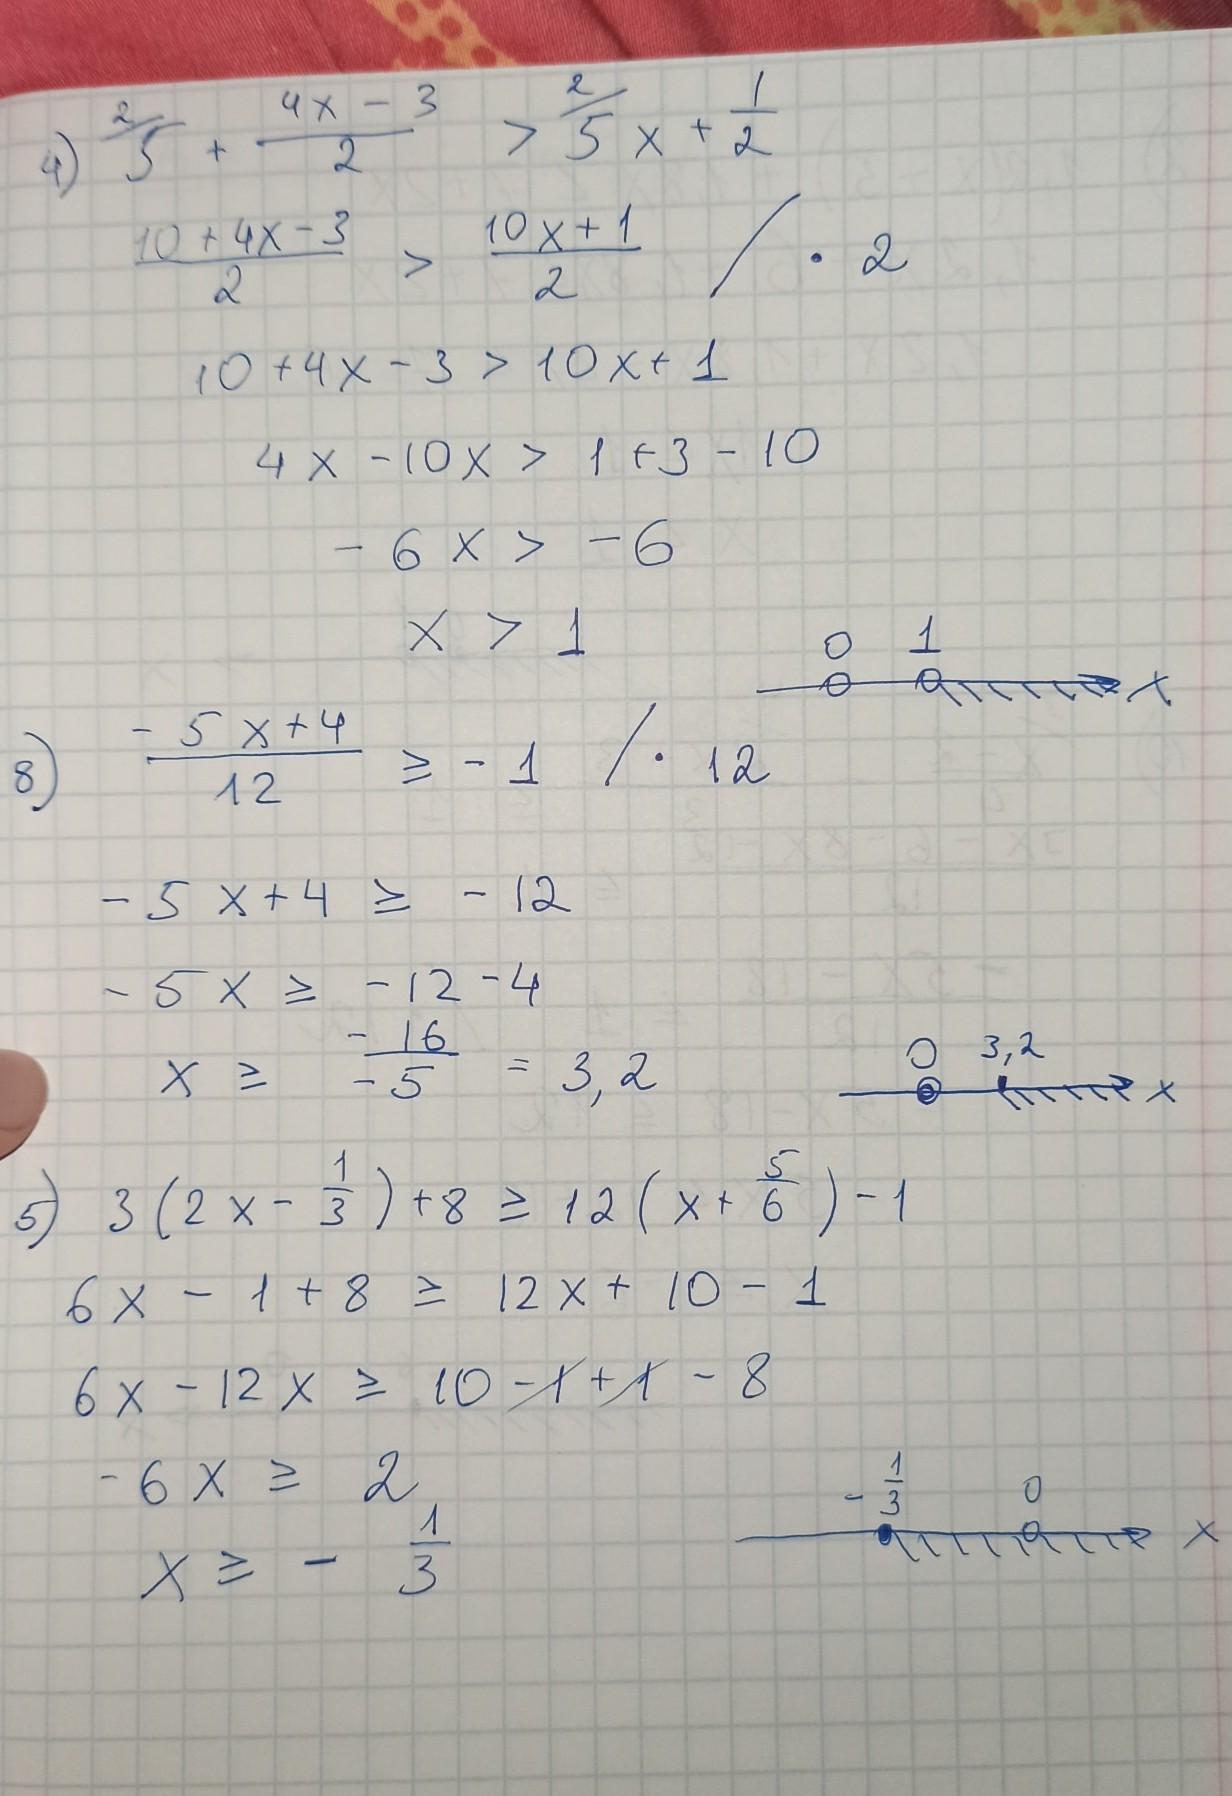 4) 2/5 + (4x - 3)/2 > 2/5 x + 1/2
(10 + 4x - 3)/2 > (10x + 1)/2 / · 2
10 + 4x - 3 > 10x + 1
4x - 10x > 1 + 3 - 10
- 6x > - 6
x > 1
0 1 x
8) (- 5x + 4)/12 ≥ - 1 / · 12
- 5x + 4 ≥ - 12
- 5x ≥ - 12 - 4
x ≥ - 16/- 5 = 3,2
0 3,2 x
5) 3(2x - 1/3) + 8 ≥ 12(x + 5/6) - 1
6x - 1 + 8 ≥ 12x + 10 - 1
6x - 12x ≥ 10 - 1 + 1 - 8
- 6x ≥ 2
x ≥ - 1/3
- 1/3 0 x